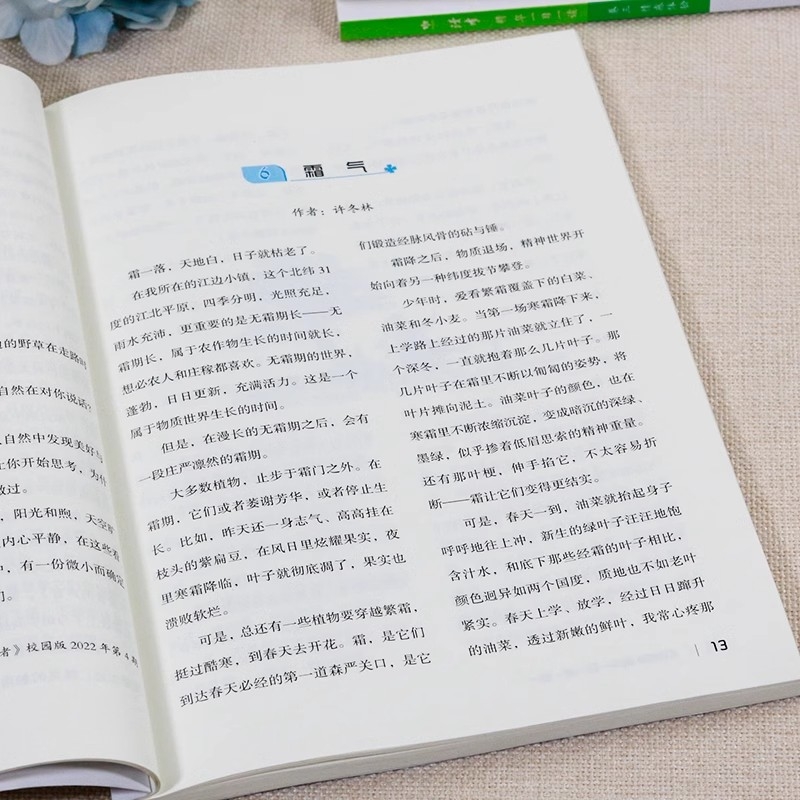 精华一日一读
的野草在走路时
自然在对你说话？
自然中发现美好与
让你开始思考，为什
过。
，阳光和煦，天空
内心平静，在这些看
中，有一份微小而确定
们。
者》校园版 2022 年第 4 期
6 霜 气
作者：许冬林
霜一落，天地白，日子就枯老了。
在我所在的江边小镇，这个北纬 31
度的江北平原，四季分明，光照充足，
雨水充沛，更重要的是无霜期长——无
霜期长，属于农作物生长的时间就长，
想必农人和庄稼都喜欢。无霜期的世界，
蓬勃，日日更新，充满活力。这是一个
属于物质世界生长的时间。
但是，在漫长的无霜期之后，会有
一段庄严凛然的霜期。
大多数植物，止步于霜门之外。在
霜期，它们或者萎谢芳华，或者停止生
长。比如，昨天还一身志气、高高挂在
枝头的紫扁豆，在风日里炫耀果实，夜
里寒霜降临，叶子就彻底凋了，果实也
溃败软烂。
可是，总还有一些植物要穿越繁霜，
挺过酷寒，到春天去开花。霜，是它们
到达春天必经的第一道森严关口，是它
们锻造经脉风骨的砧与锤。
霜降之后，物质退场，精神世界开
始向着另一种纬度拔节攀登。
少年时，爱看繁霜覆盖下的白菜、
油菜和冬小麦。当第一场寒霜降下来，
上学路上经过的那片油菜就立住了，一
个深冬，一直就抱着那么几片叶子。那
几片叶子在霜里不断以匍匐的姿势，将
叶片摊向泥土。油菜叶子的颜色，也在
寒霜里不断浓缩沉淀，变成暗沉的深绿、
墨绿，似乎掺着低眉思索的精神重量。
还有那叶梗，伸手掐它，不太容易折
断——霜让它们变得更结实。
可是，春天一到，油菜就抬起身子
呼呼地往上冲，新生的绿叶子汪汪地饱
含汁水，和底下那些经霜的叶子相比，
颜色迥异如两个国度，质地也不如老叶
紧实。春天上学、放学，经过日日蹿升
的油菜，透过新嫩的鲜叶，我常心疼那
13